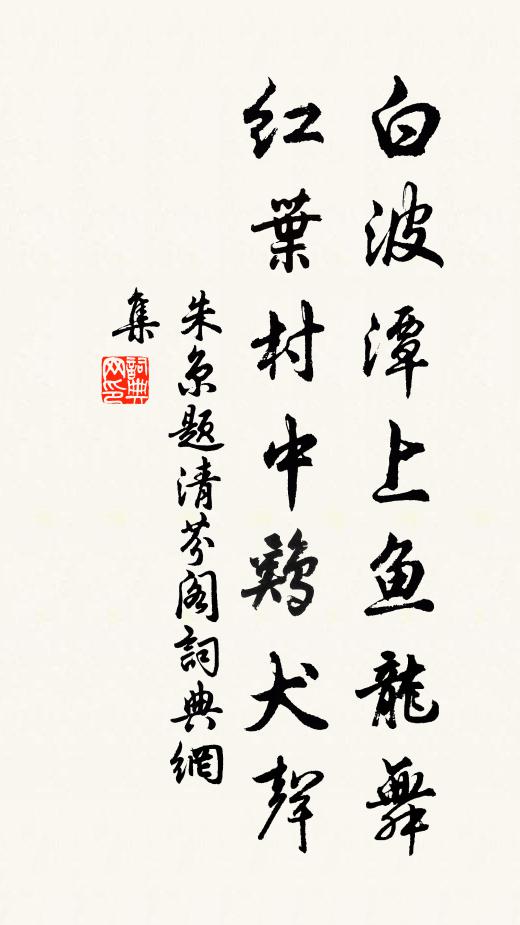 白波潭上鱼龍舞
红葉村中鷄犬聲
朱京题清芬阁詞典網
集
詞典
网印